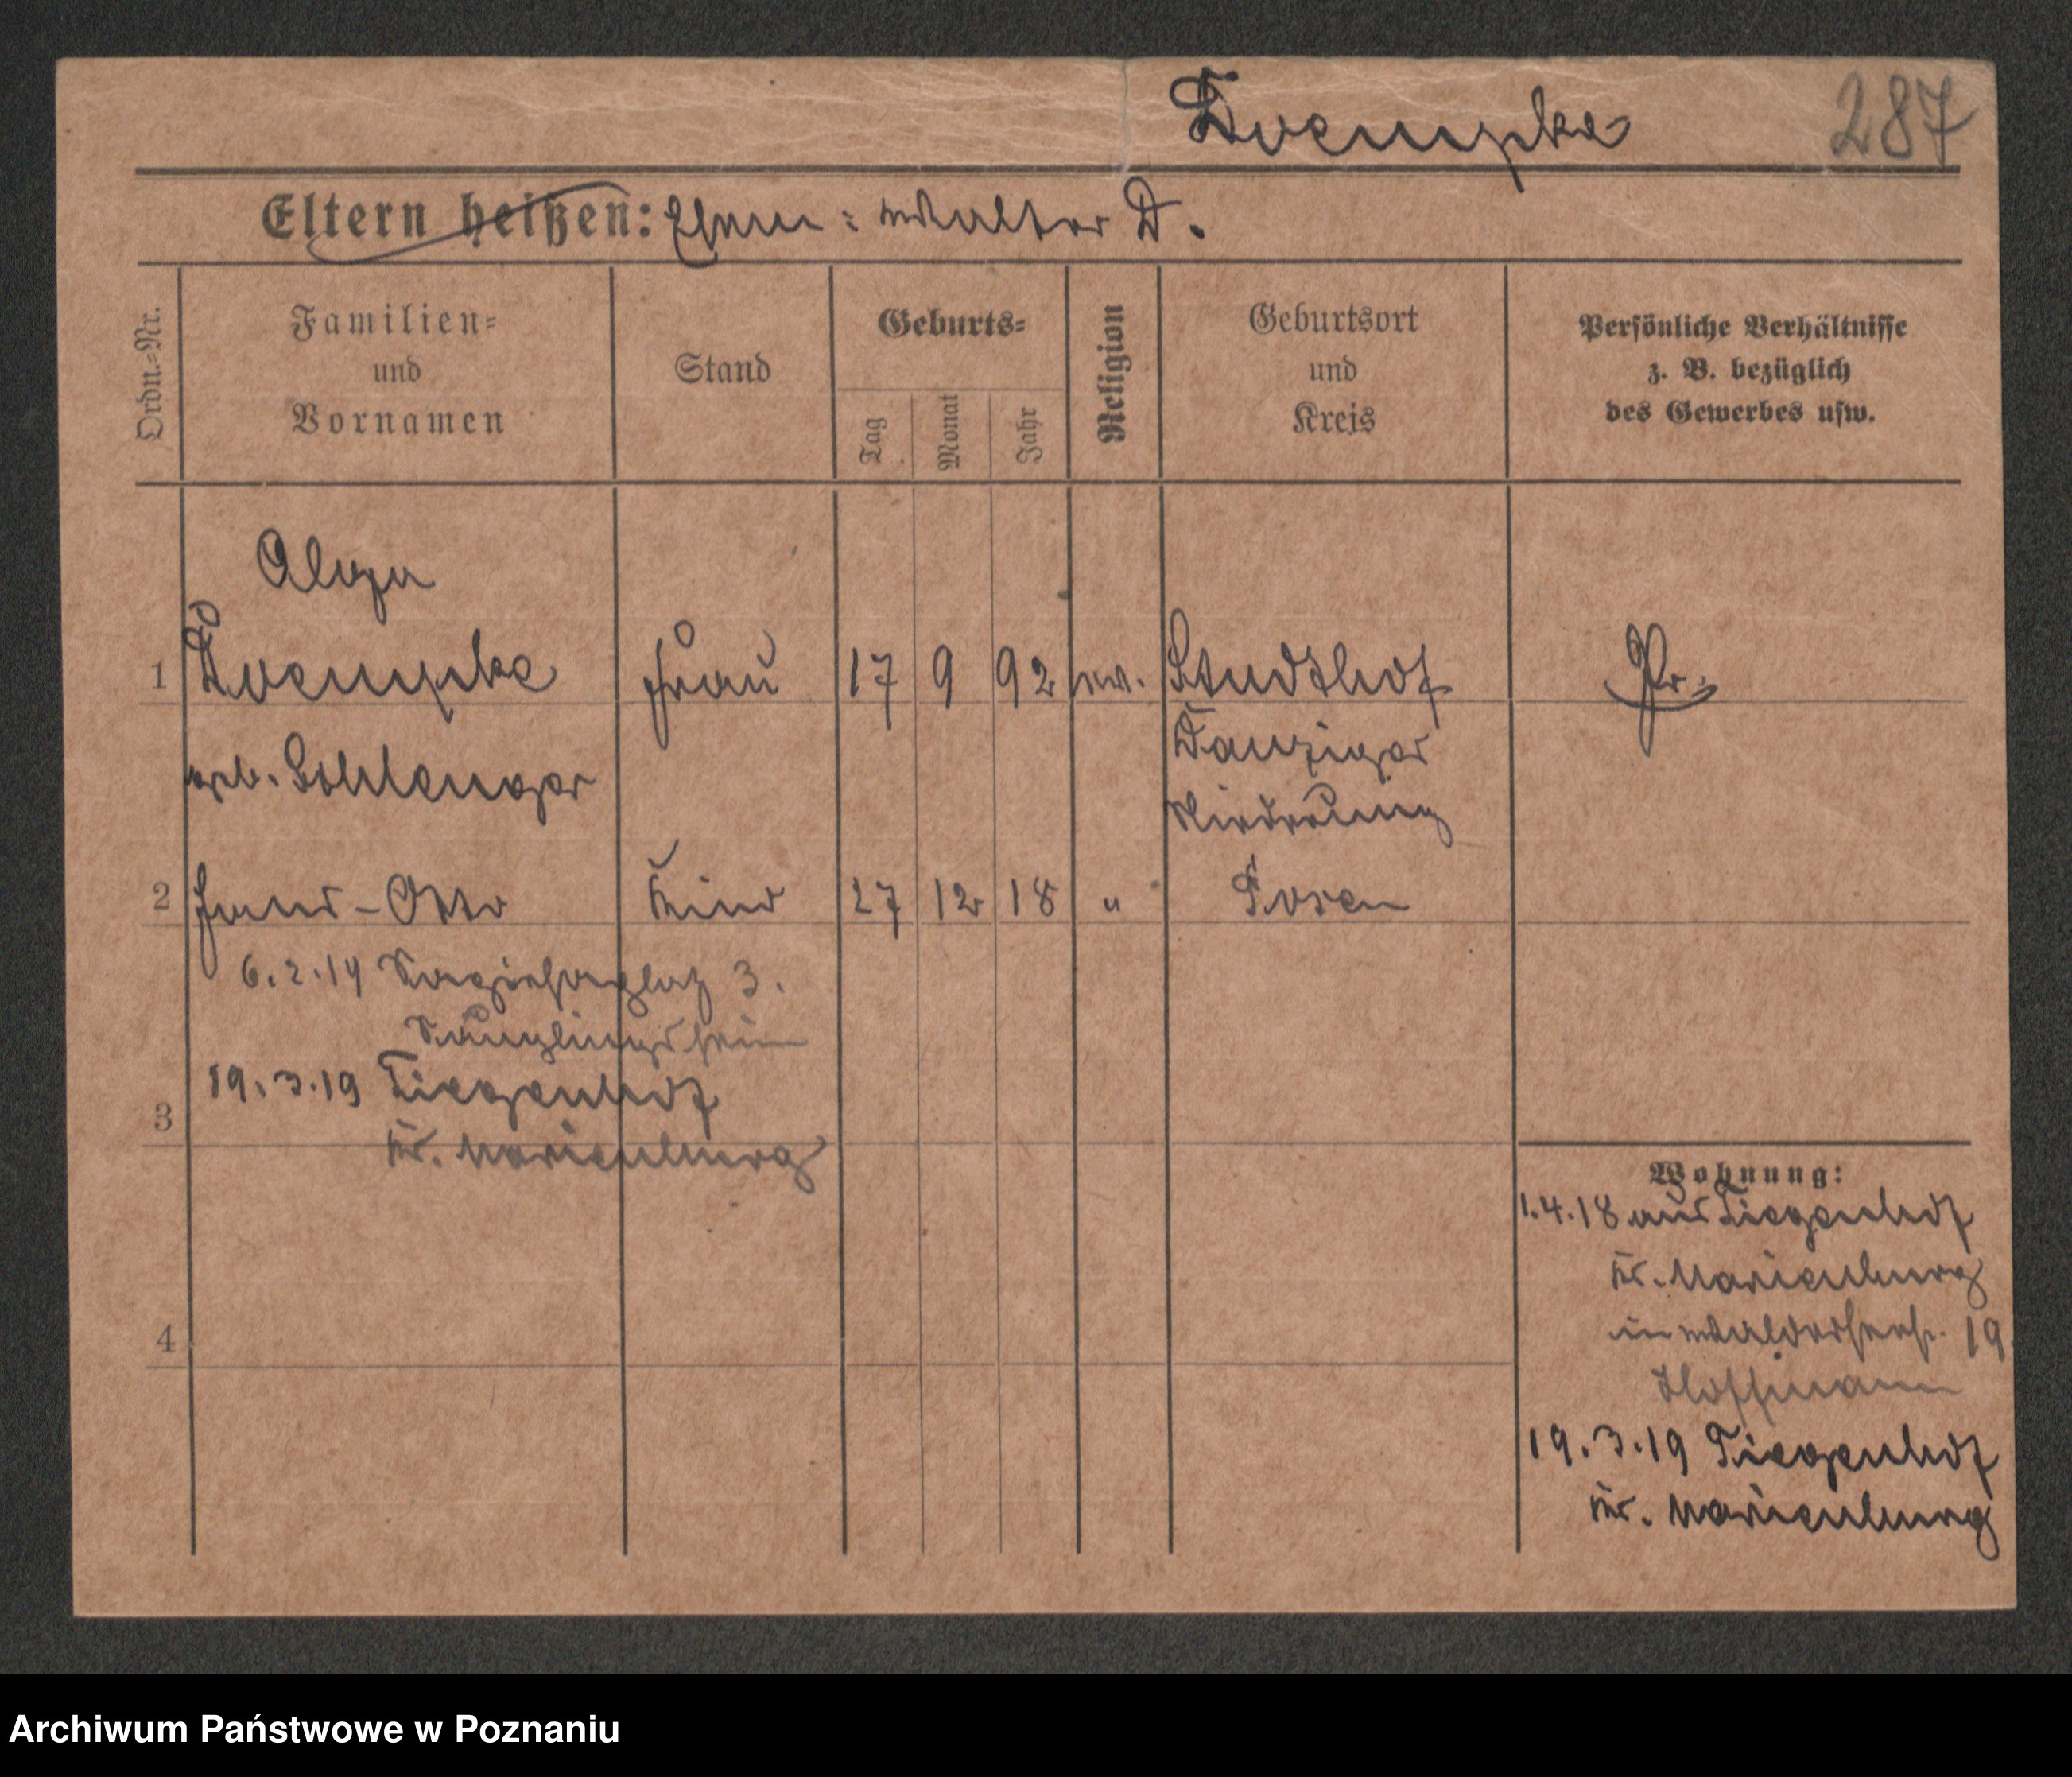 Doempke
287
Eltern heißen: Ehem: Walter D.
Ordn.-Nr.
Familien-
und
Vornamen
Stand
Geburts-
Tag
Monat
Jahr
Religion
Geburtsort
und
Kreis
Persönliche Verhältnisse
z. B. bezüglich
des Gewerbes usw.
Olga
1 Doempke Frau 17 9 92 ev. Stutthof Pr.
Danziger
geb.
Niederung
2 Hans-Otto Kind 27 12 18 " Posen
6.2.19 3.
Säuglingsheim
19.3.19 Tiegenhof
3
Kr. Marienburg
Wohnung:
1.4.18 aus Tiegenhof
Kr. Marienburg
in 19
4
Hoffmann
19.3.19 Tiegenhof
Kr. Marienburg
Archiwum Państwowe w Poznaniu